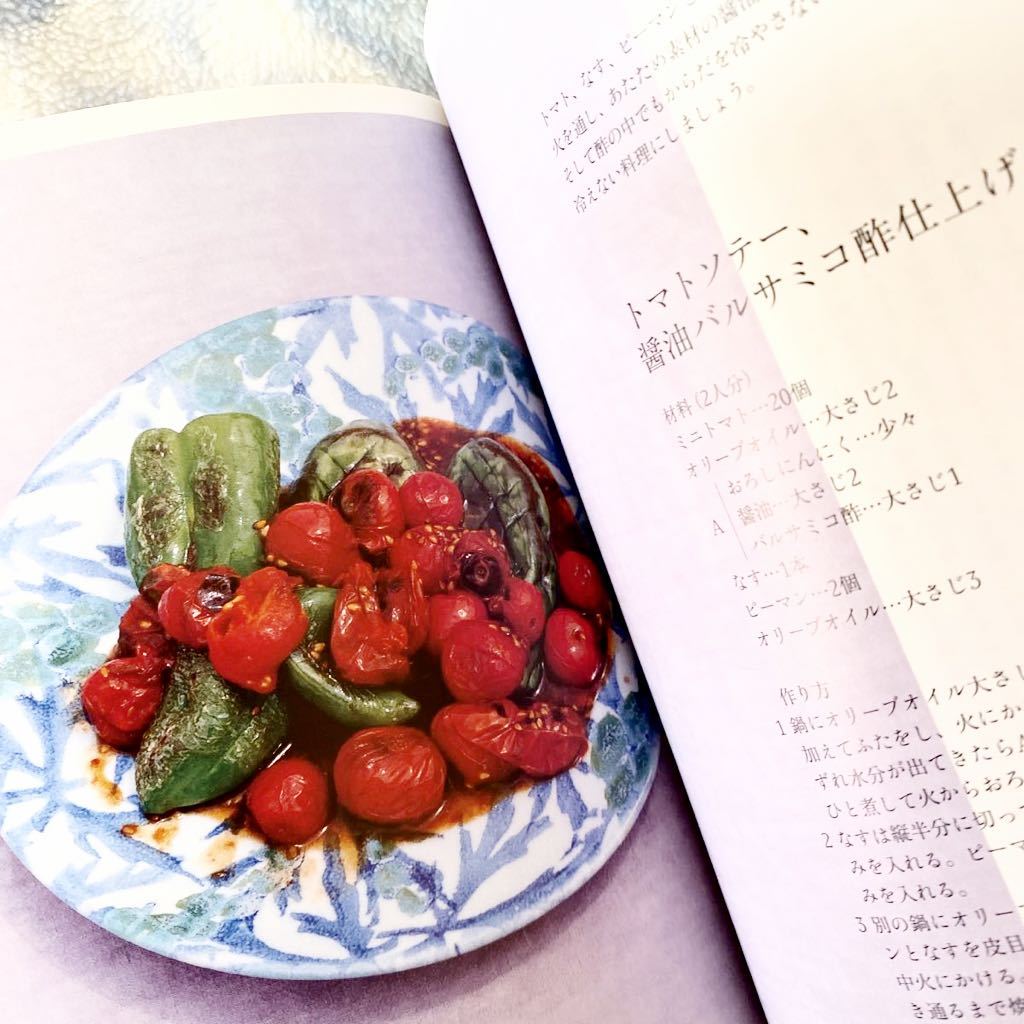 トマト、なす、ピーマン
火を通し、あたため素材の醤油
そして酢の中でもからだを冷やさない
冷えない料理にしましょう。
トマトソテー、
醤油バルサミコ酢仕上げ
材料(2人分)
ミニトマト…20個
オリーブオイル…大さじ2
おろしにんにく…少々
A
醤油…大さじ2
バルサミコ酢…大さじ1
なす…1本
ピーマン…2個
オリーブオイル…大さじ3
作り方
1 鍋にオリーブオイル大さじ
加えてふたをし、火にか
ずれ水分が出てきたら
ひと煮して火からおろ
2 なすは縦半分に切っ
みを入れる。ピーマ
みを入れる。
3 別の鍋にオリー
ンとなすを皮目
中火にかける。
き通るまで焼